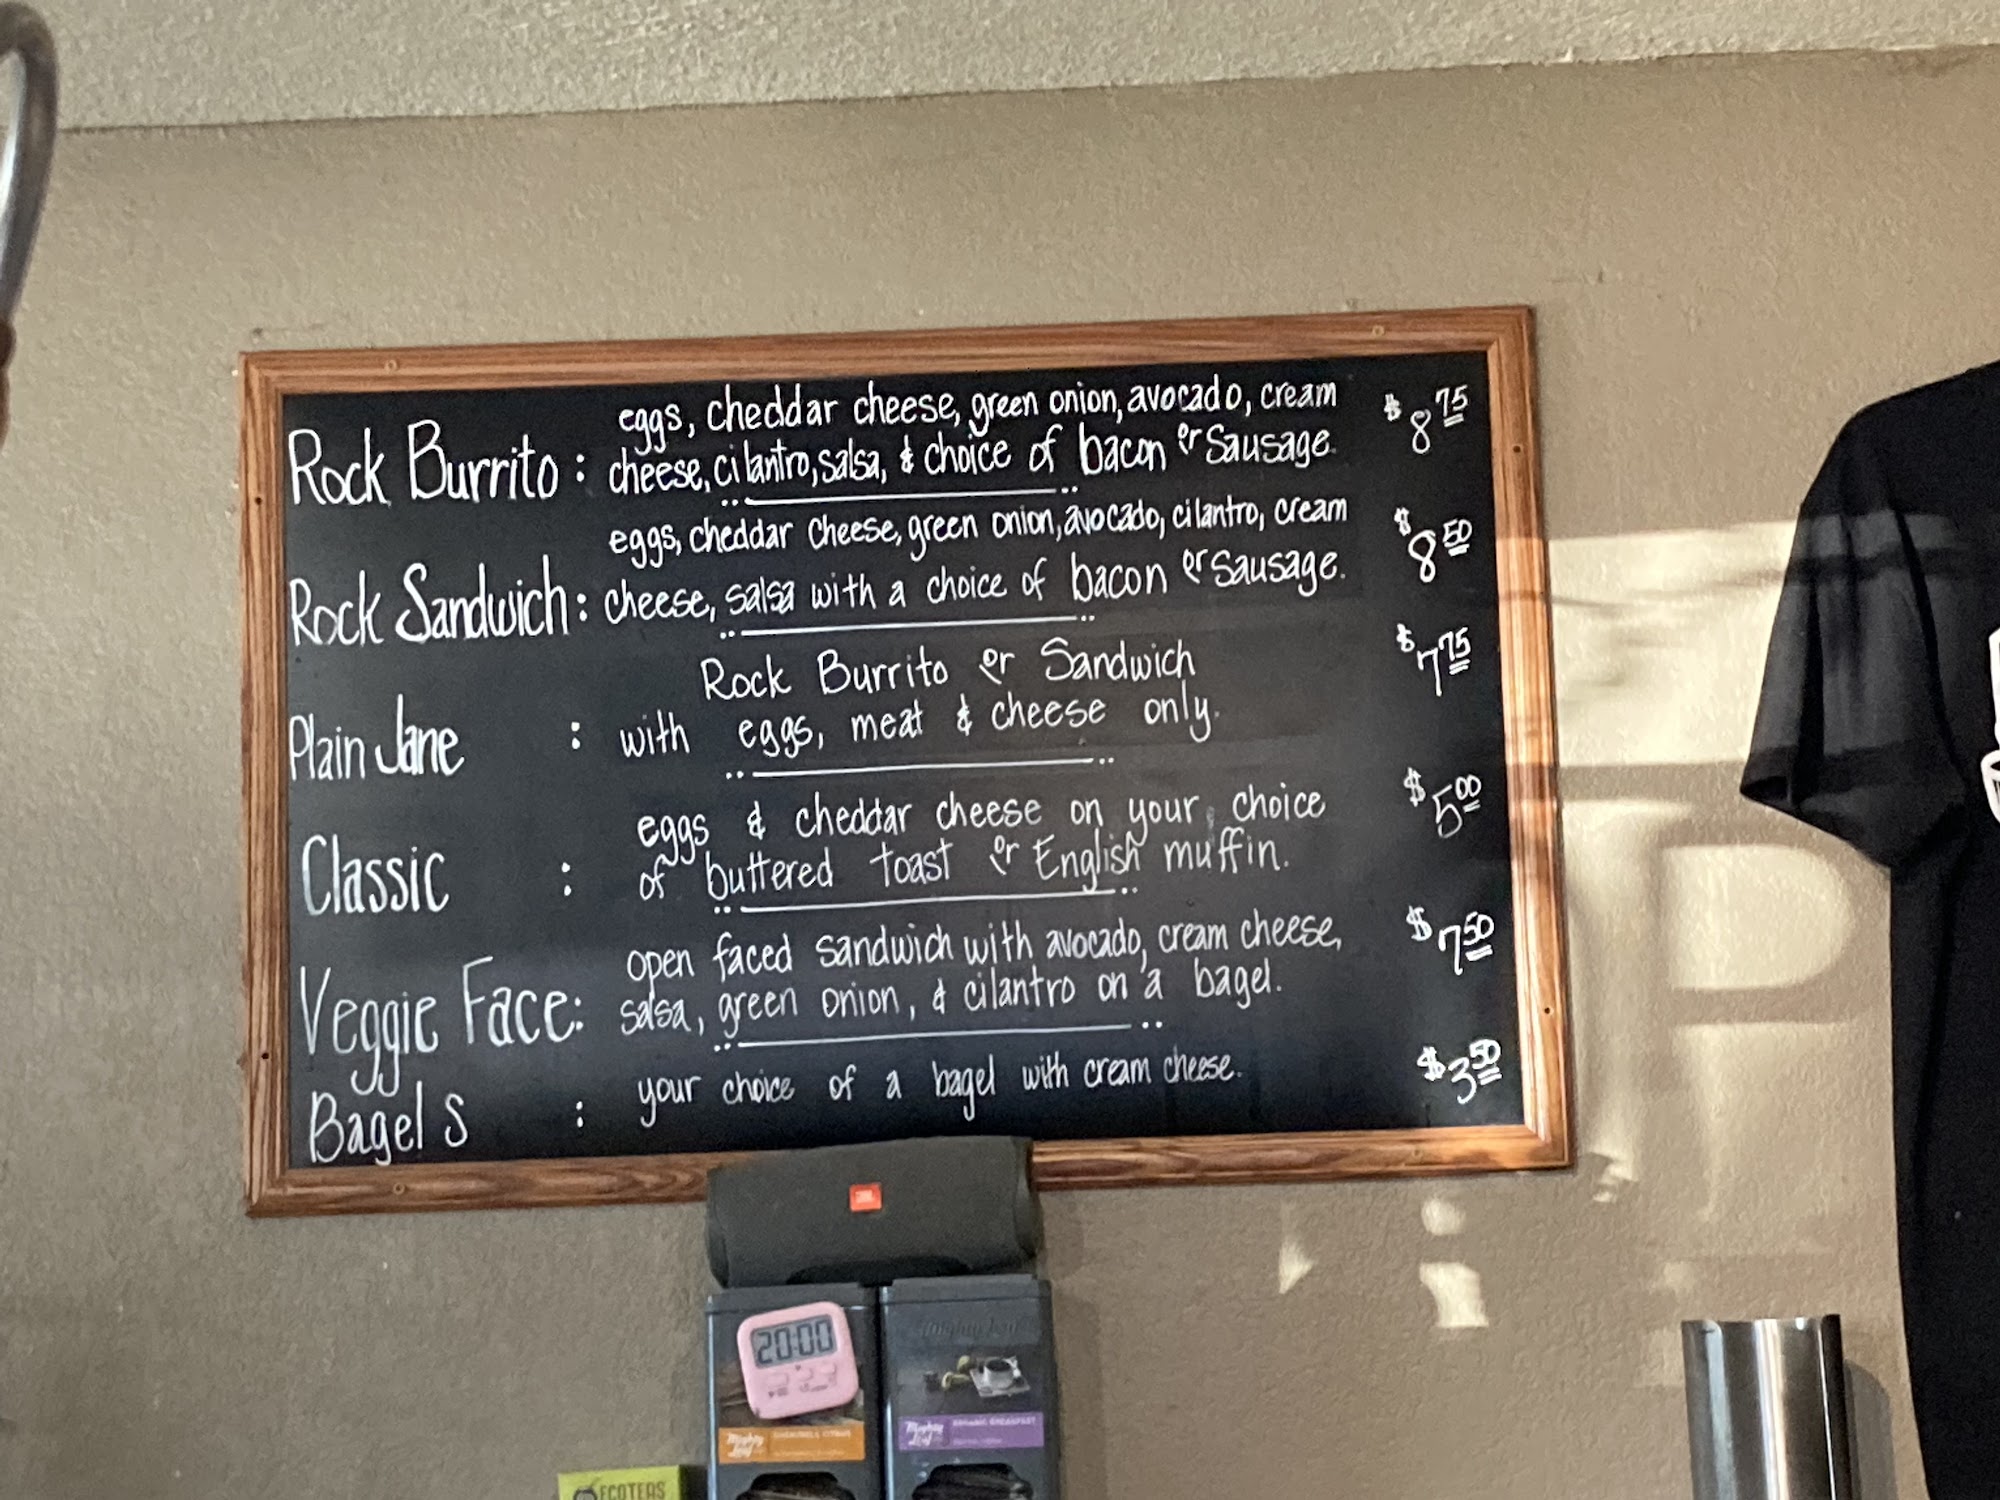 Rock Burrito : eggs, cheddar cheese, green onion, avocado, cream
cheese, cilantro, salsa, & choice of bacon or Sausage.
$8.75
Rock Sandwich : eggs, cheddar cheese, green onion, avocado, cilantro, cream
cheese, salsa with a choice of bacon or Sausage.
$8.50
Plain Jane : Rock Burrito or Sandwich
with eggs, meat & cheese only.
$7.75
Classic : eggs & cheddar cheese on your choice
of buttered toast or English muffin.
$5.00
Veggie Face: open faced sandwich with avocado, cream cheese,
salsa, green onion, & cilantro on a bagel.
$7.50
Bagels : your choice of a bagel with cream cheese.
$3.50
JBL
20:00
Mighty Leaf
Mighty Leaf
ORGANIC BREAKFAST
ECOTEAS